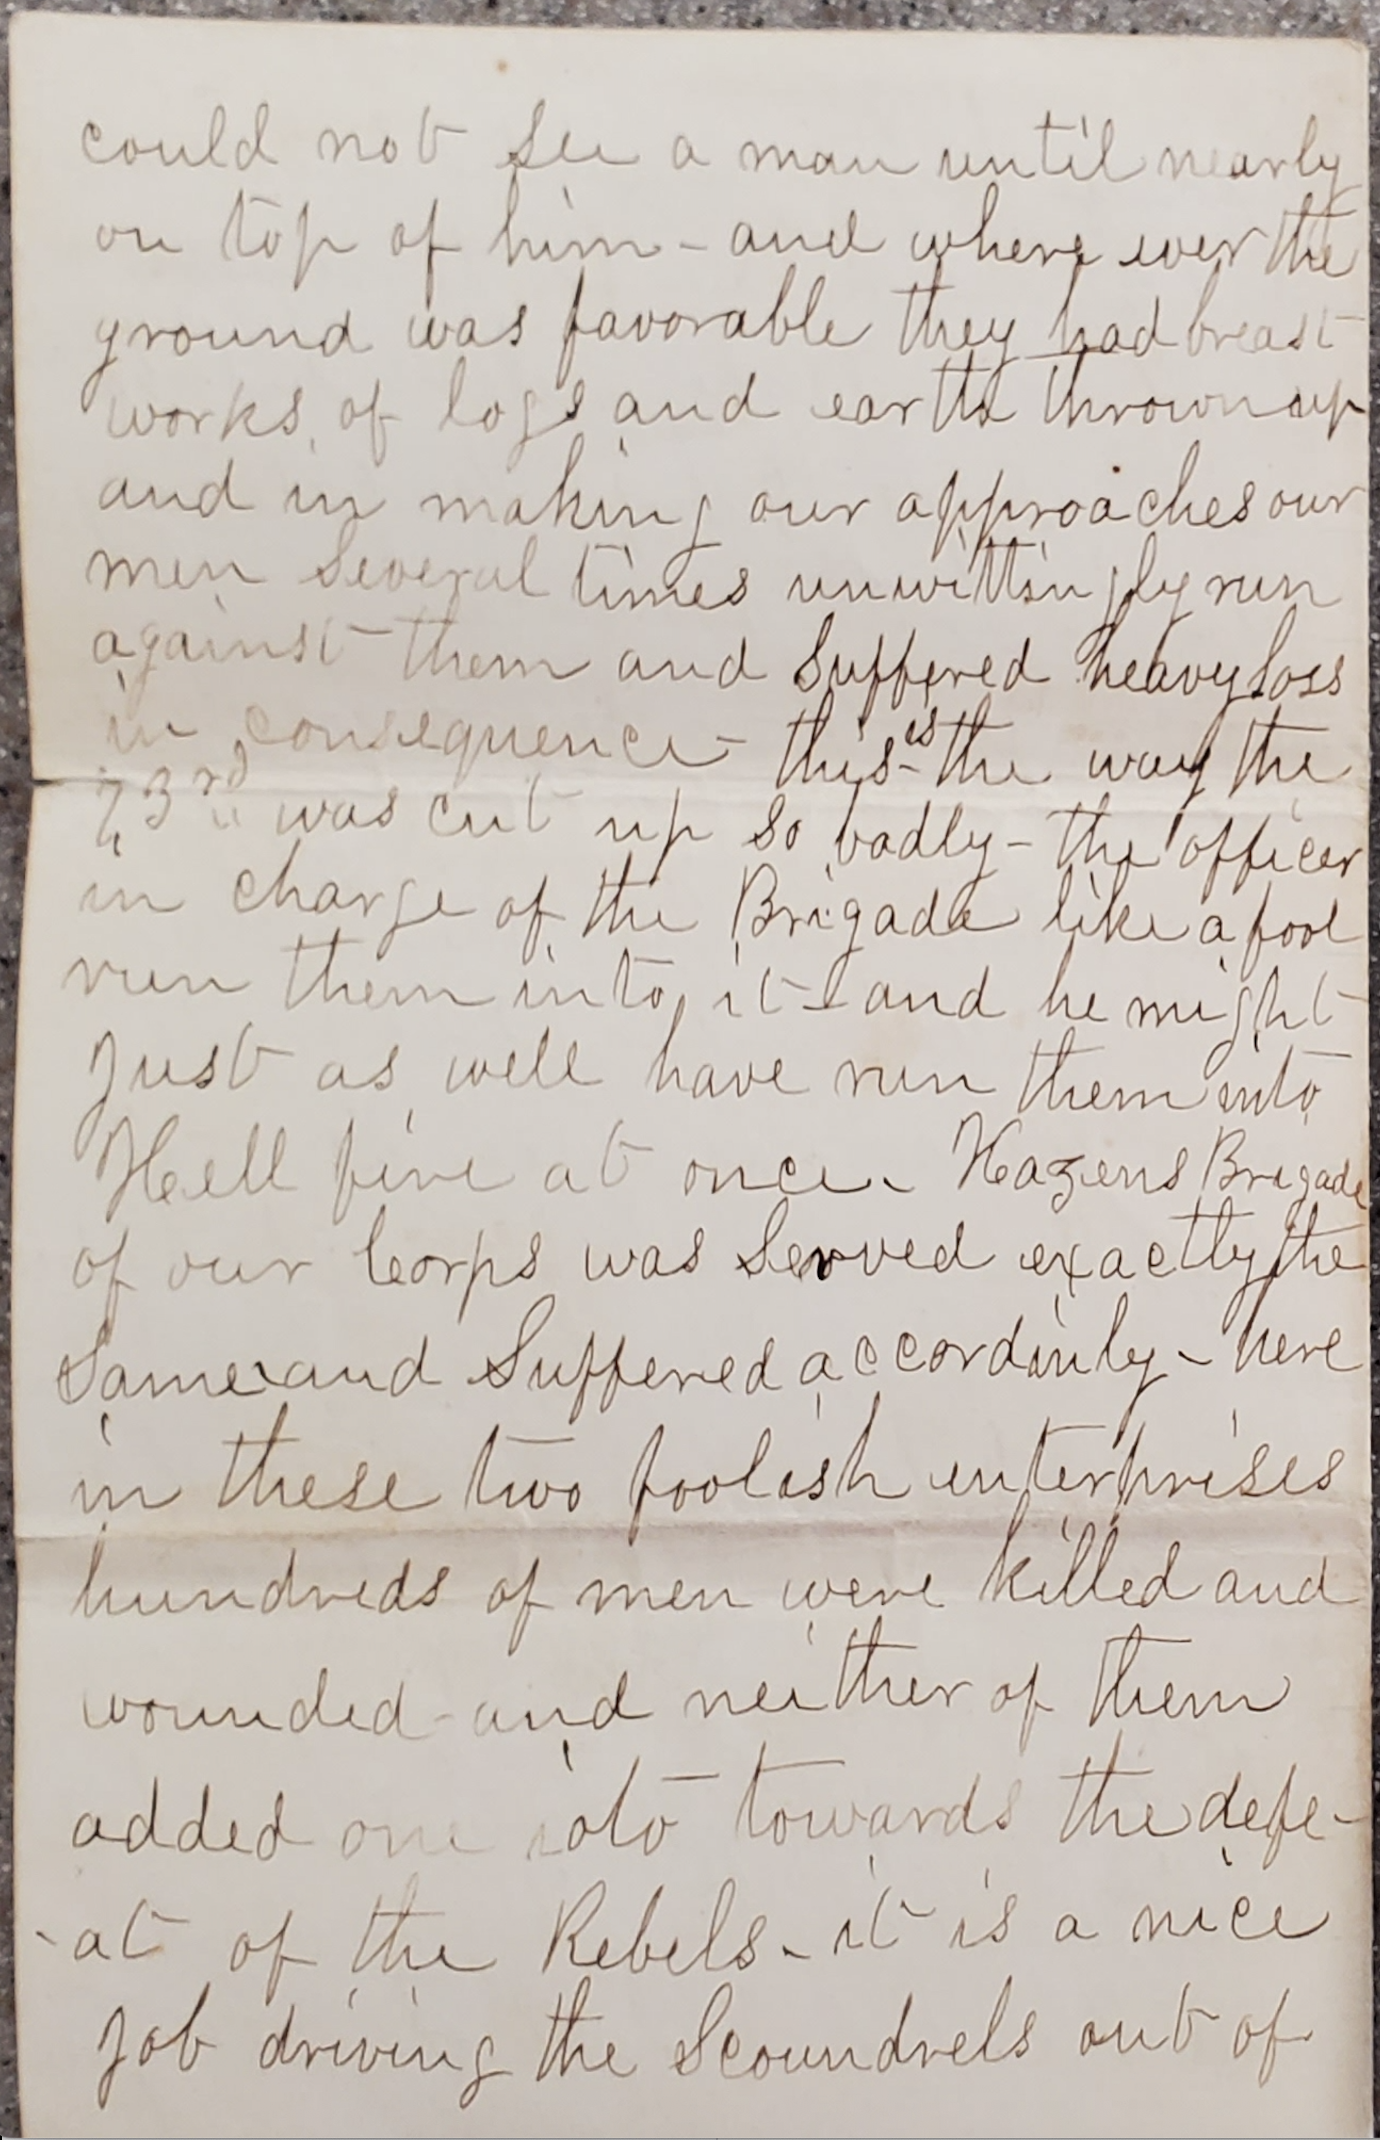 could not see a man until nearly
on top of him - and where ever the
ground was favorable they had breast
works of logs and earth thrown up
and in making our approaches our
men several times unwittingly run
against them and suffered heavy loss
in consequence - this is the way the
73rd was cut up so badly - the officer
in charge of the Brigade like a fool
run them into it - and he might
just as well have run them into
Hell fire at once. Hazens Brigade
of our Corps was served exactly the
same and suffered accordinly - here
in these two foolish enterprises
hundreds of men were killed and
wounded - and neither of them
added one ioto towards the defe-
-at of the Rebels - it is a nice
job driving the Scoundrels out of